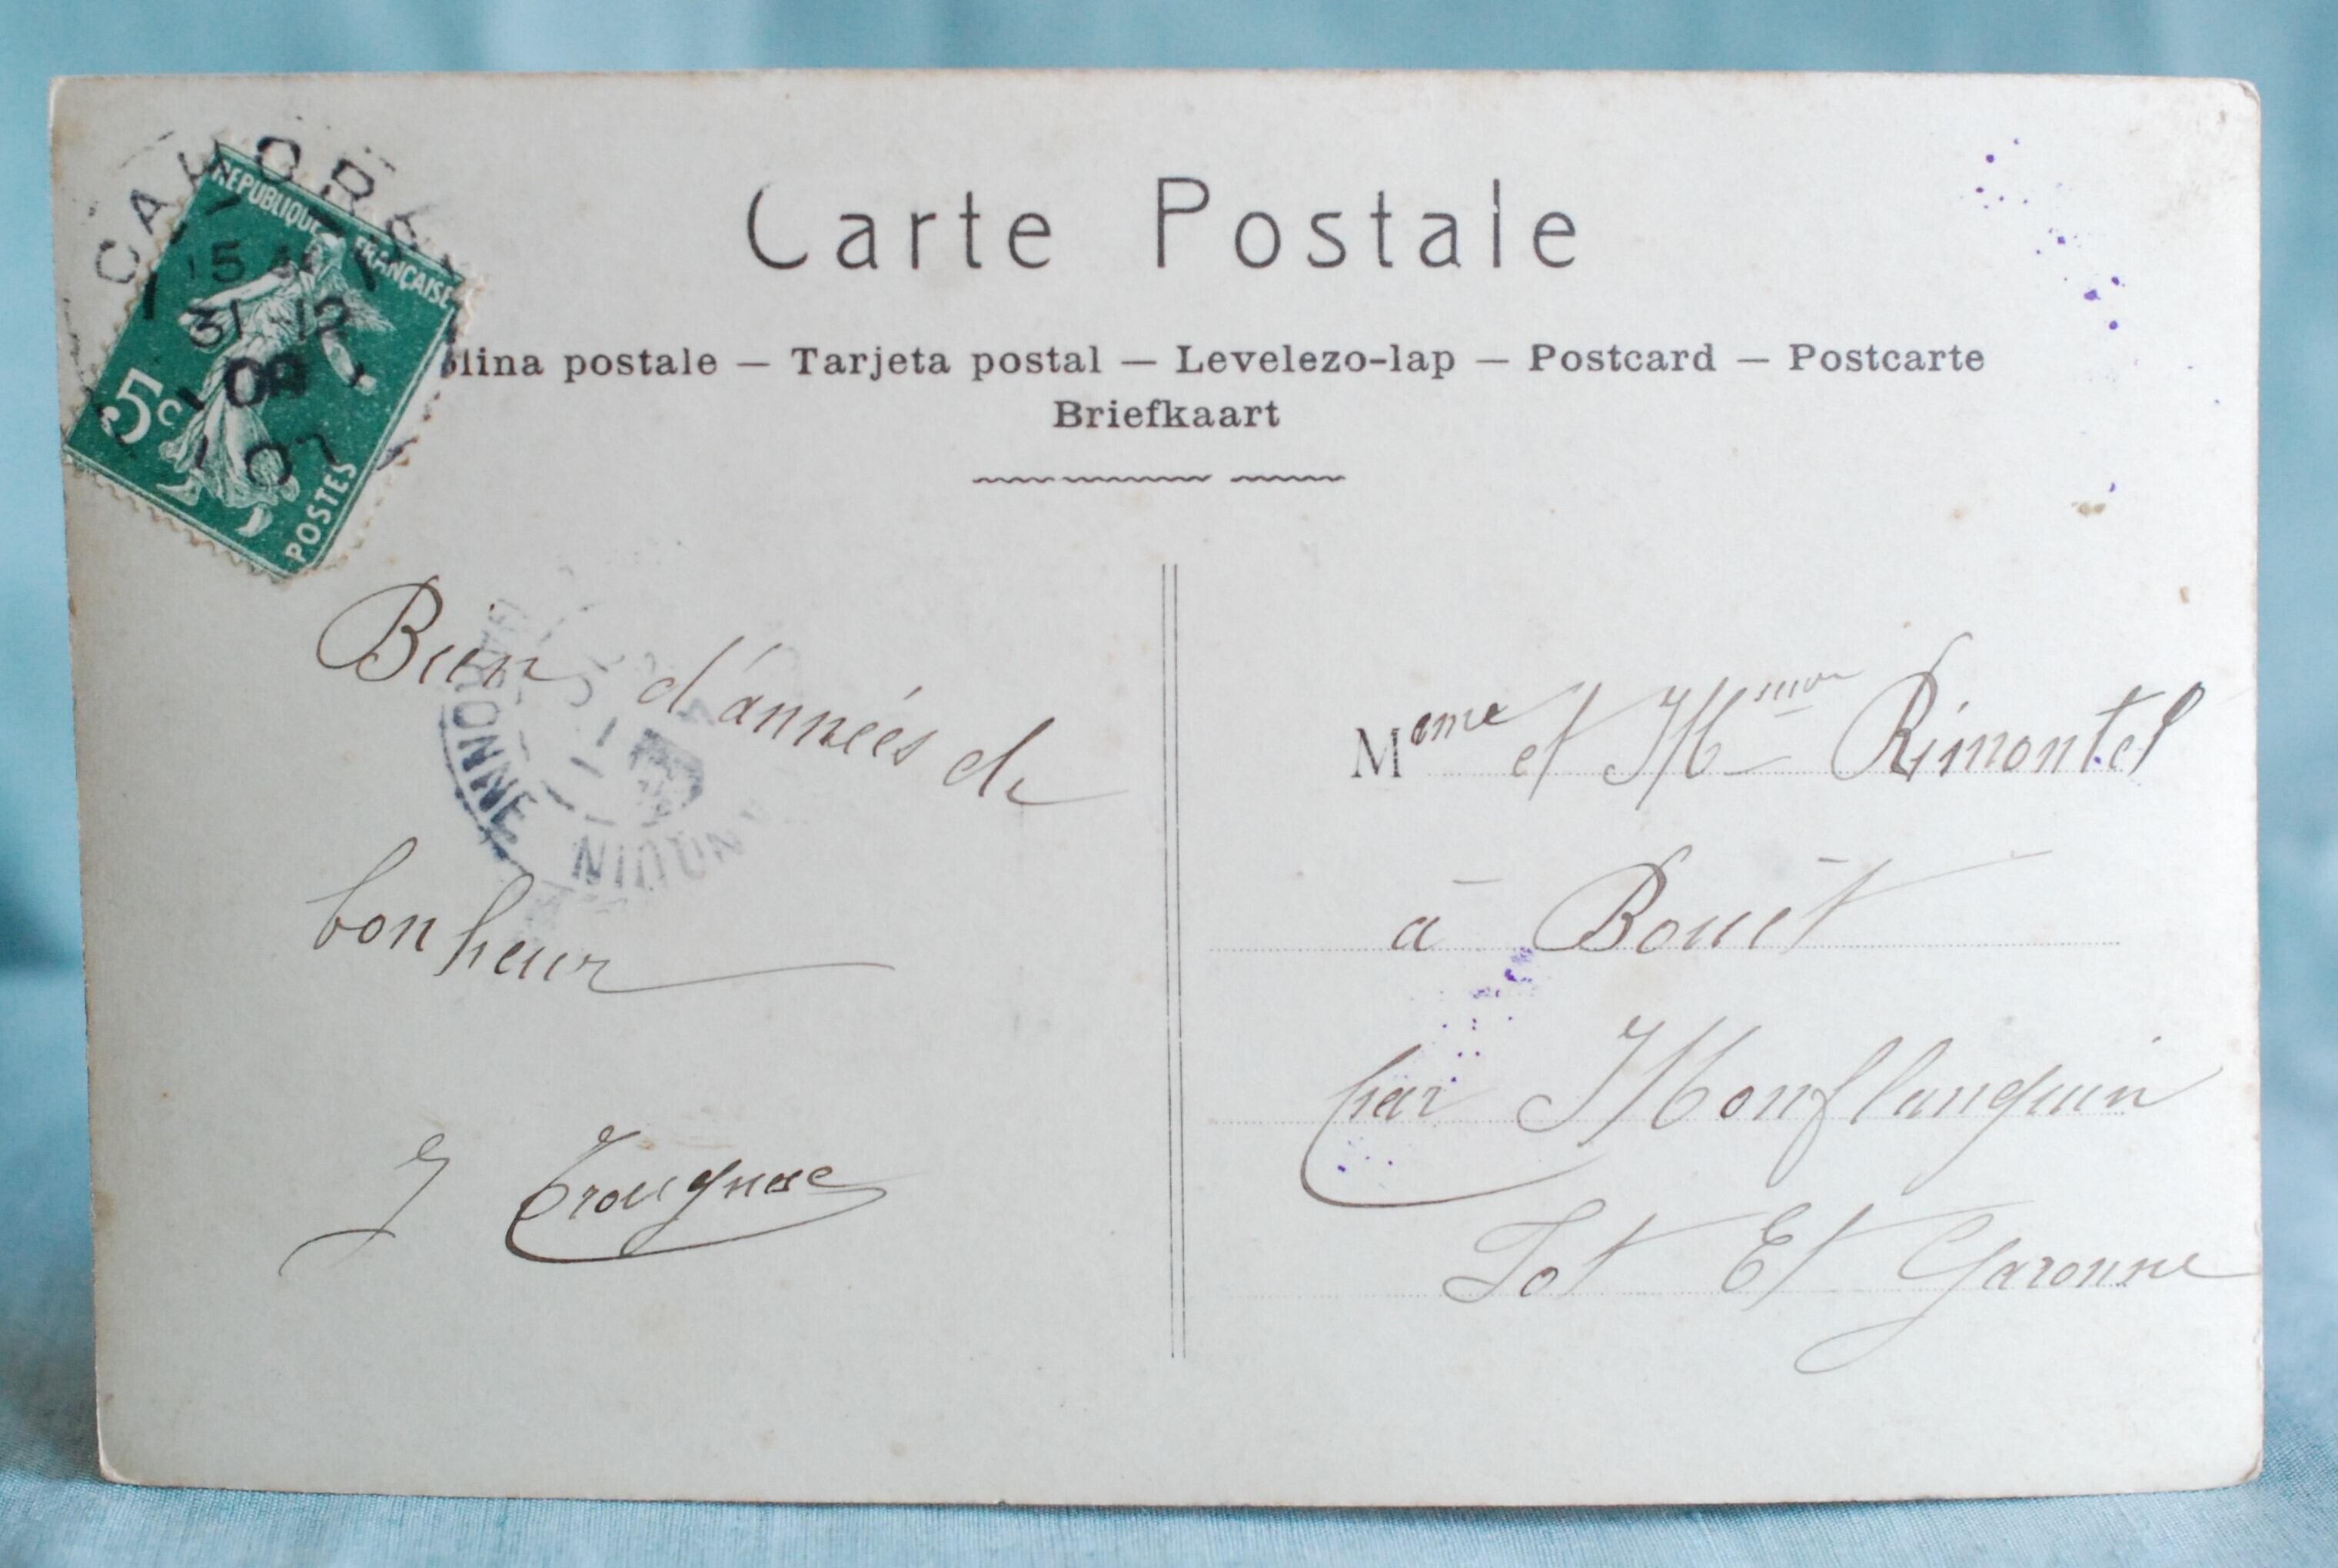 CAHORS
REPUBLIQUE FRANÇAISE
31-12
09
5c
POSTES
Carte Postale
lina postale — Tarjeta postal — Levelezo-lap — Postcard — Postcarte
Briefkaart
Bien d'années de
bonheur
GARONNE
Meme et Mmme Rimontel
à Bouet
par Monflanquin
Lot Et Garonne